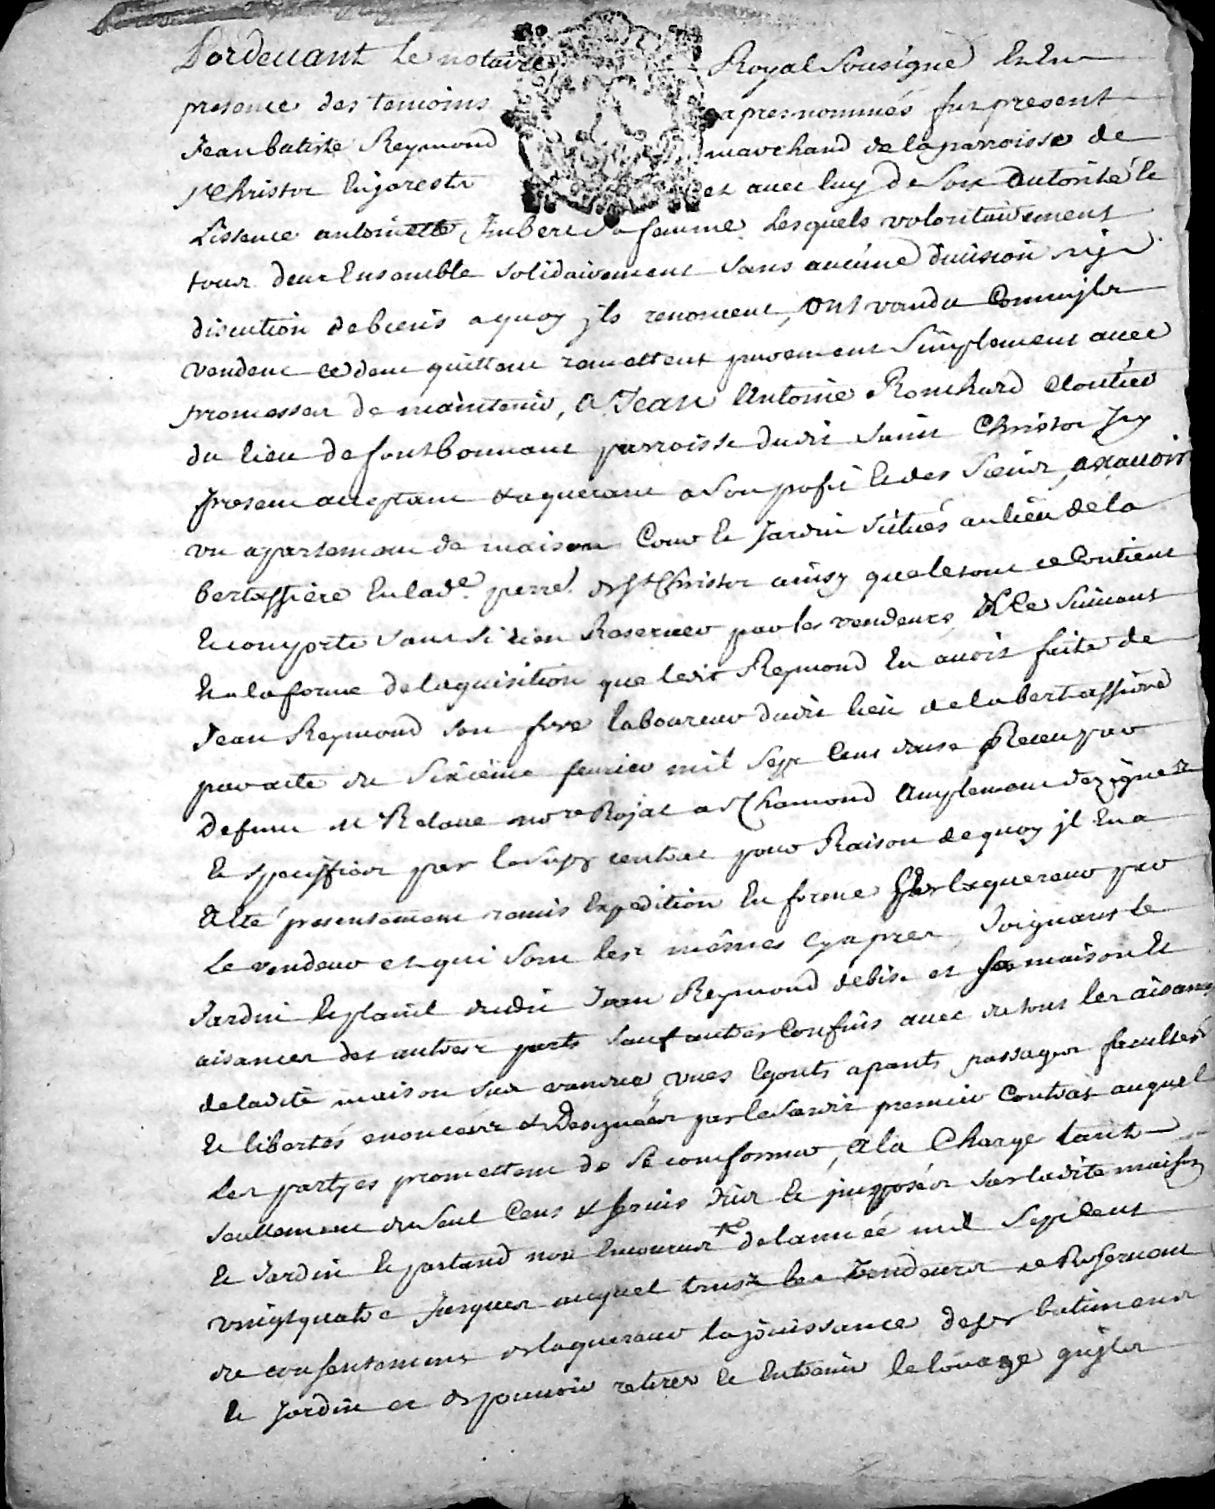 Pardevant le notaire Royal Sousigné Et En
presence des temoins apres nommés fut present
Jean batiste Reymond marchand de la parroisse de
St Christor En jarestz et avec luy de Son Autorité Et
Lissence antoinette Imbert Sa femme Lesquels volontairement
tous deux Ensemble solidairement sans aucune division ny
discution de biens a quoy jls renoncent, Ont vandu Comme jls
vendent cedent quittent remettent purement Simplement avec
promesses de maintenir, A Jean Antoine Ronchard cloutier
du lieu de fontbonnant parroisse dudit Saint Christor Jcy
present acceptant & aquerant a Son profit Et des Siens, ascavoir
un apartement de maison Cour Et Jardin situés au lieu de la
bertassière En lade. parre. de St Christor ainsy que le tout ce Contient
Et comporte sans si rien Reserver par les vendeurs & Ce Suivant
En la forme de laquisition que ledit Reymond En avoit faite de
Jean Reymond son frere laboureur dudit lieu de la bertassiere
par acte du Sixième fevrier mil Sept Cens douse Receu par
defunt Me nore Royal a St Chamond Amplement dezignez
Et speciffiez par le susd contrat pour Raison de quoy jl En a
Eté presentement remis Expedition En forme a laquereur par
Le vendeur et qui Sont les mêmes cyapres, Joignant le
Jardin Et plassil dudit Jean Reymond de bise et sa maison Et
aisances des autres parts sauf autres Confins avec de tous les aisances
de ladite maison Sus vandue, vues Egouts apants, passages facultés
Et libertés enoncées & Designées par le Sandit premier Contrat auquel
Les partyes promettent de Se conformer, A la Charge tant
seullement du Seul Cens & Servis dûs Et jmpposés sur ladite maison
Et Jardin Et partand non Encourus de lannée mil Sept Cent
vingt quatre Jusques auquel temps les Vendeurs ce Reservent
du consentement de laquereur la joüissance desds batiments
Et Jardin et de pouvoir retirer Et Entenir le loüage qujls